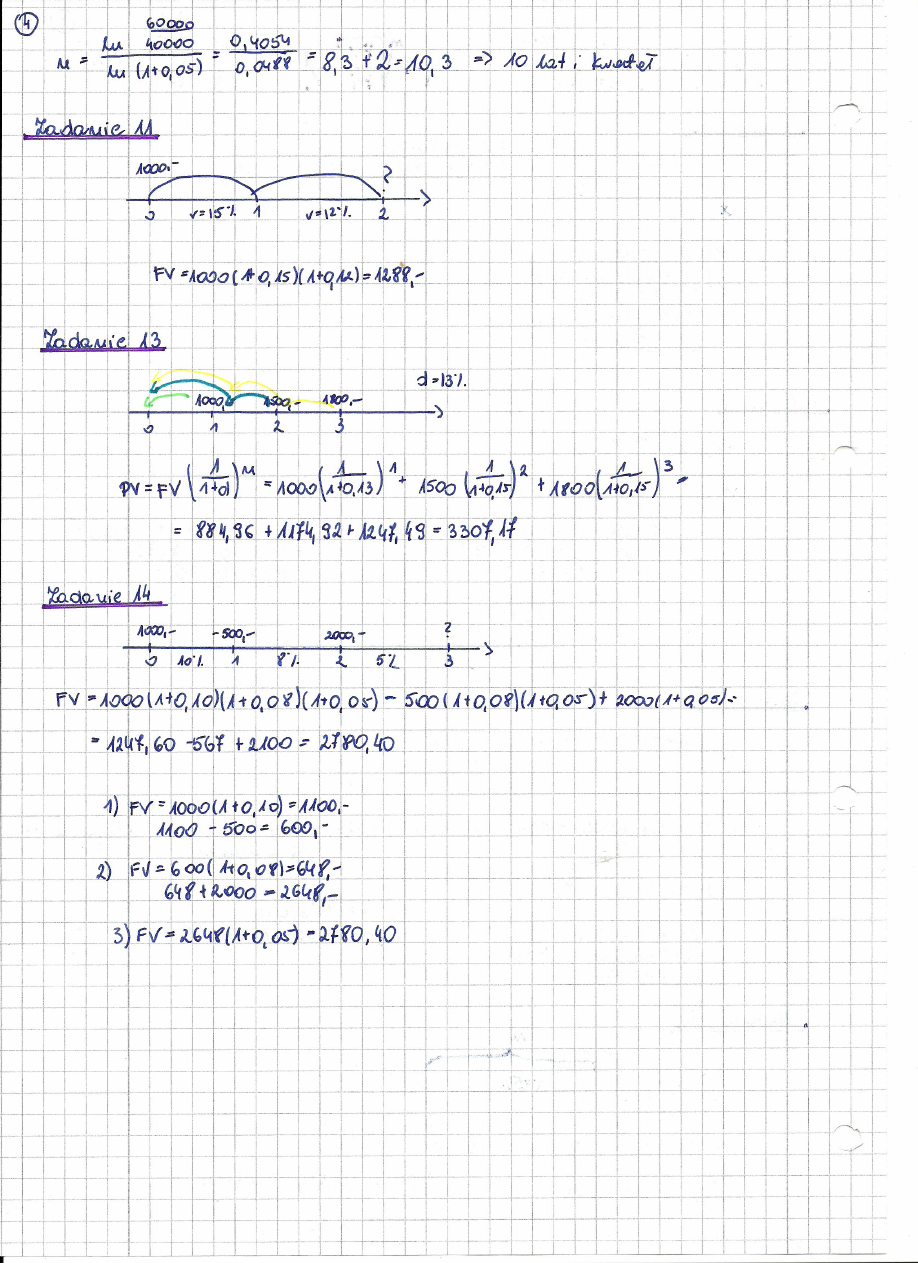 4
n = ln 60000/40000 / ln (1+0,05) = 0,4054 / 0,0488 = 8,3 + 2 = 10,3 => 10 lat i kwartał
Zadanie 11
1000,- ?
0 r=15% 1 r=12% 2
FV = 1000(1+0,15)(1+0,12) = 1288,-
Zadanie 13
d = 13%
1000,- 1500,- 1800,-
0 1 2 3
PV = FV (1/(1+d))^n = 1000(1/(1+0,13))^1 + 1500(1/(1+0,15))^2 + 1800(1/(1+0,15))^3 =
= 884,96 + 1174,92 + 1247,49 = 3307,17
Zadanie 14
1000,- -500,- 2000,- ?
0 10% 1 8% 2 5% 3
FV = 1000(1+0,10)(1+0,08)(1+0,05) - 500(1+0,08)(1+0,05) + 2000(1+0,05) =
= 1247,60 - 567 + 2100 = 2780,40
1) FV = 1000(1+0,10) = 1100,-
1100 - 500 = 600,-
2) FV = 600(1+0,08) = 648,-
648 + 2000 = 2648,-
3) FV = 2648(1+0,05) = 2780,40